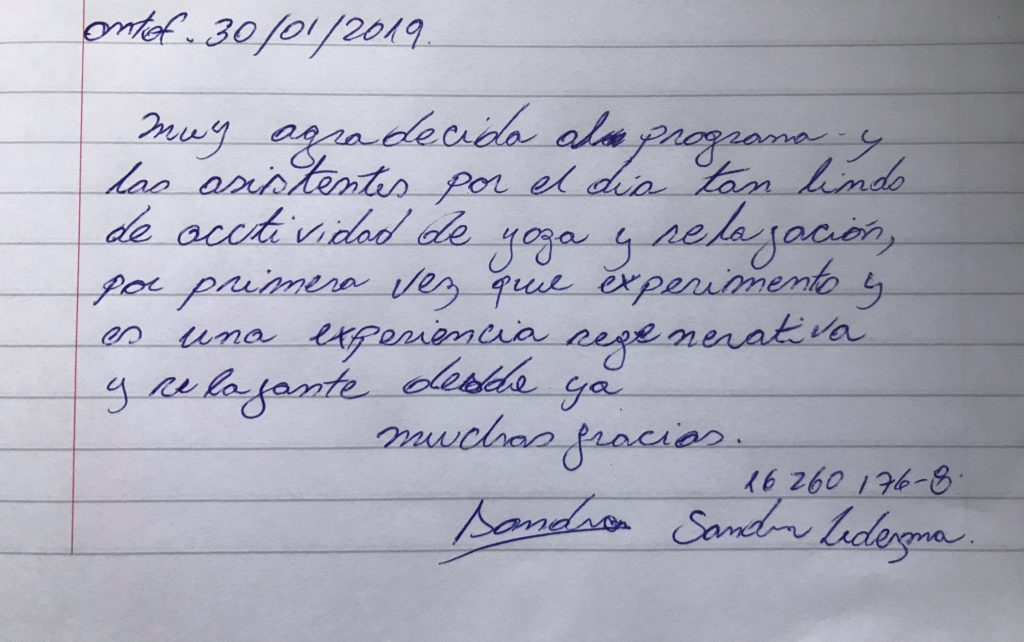 antof. 30/01/2019.
Muy agradecida al programa y
las asistentes por el dia tan lindo
de acctividad de yoga y relajación,
por primera vez que experimento y
es una experiencia regenerativa
y relajante desde ya
muchas gracias.
16 260 176-8.
Sandra Sandra Ledezma.